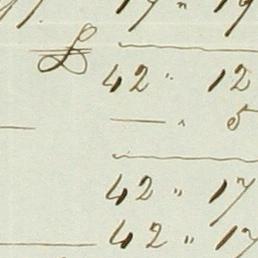 17 " 19
£ 42 " 12
— " 5
42 " 17
42 " 17